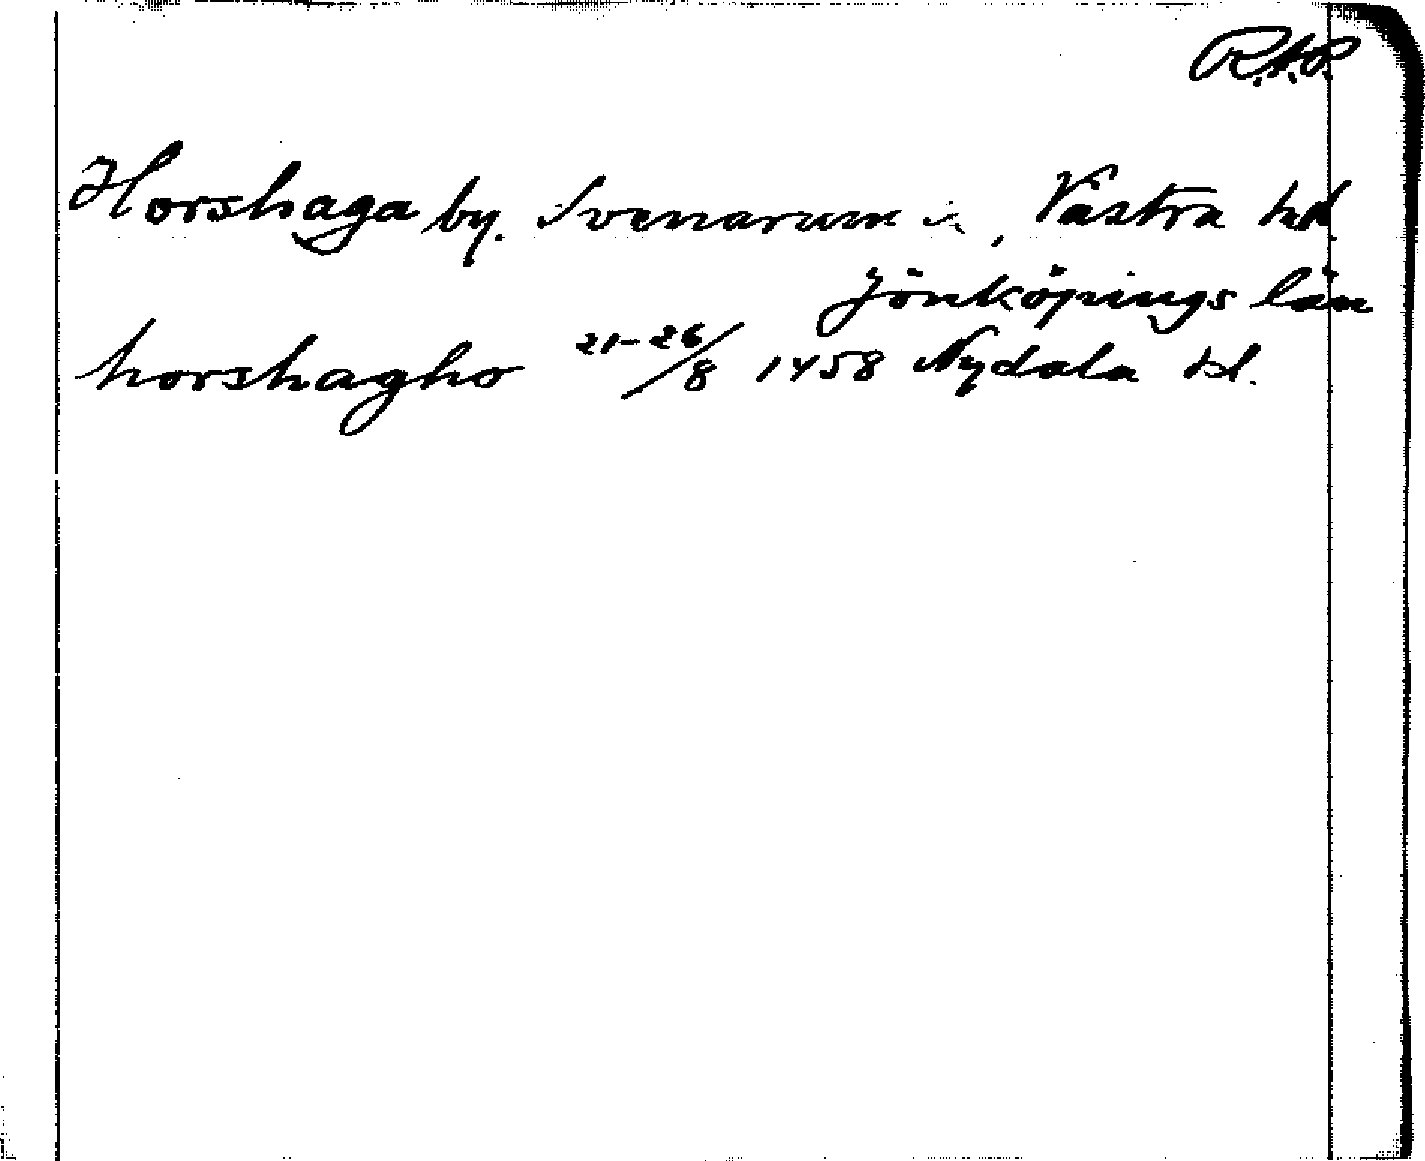 R.A.P.
Horshaga by. Svenarum s., Västra hd.
Jönköpings län
horshagho 21-26/8 1458 Nydala kl.